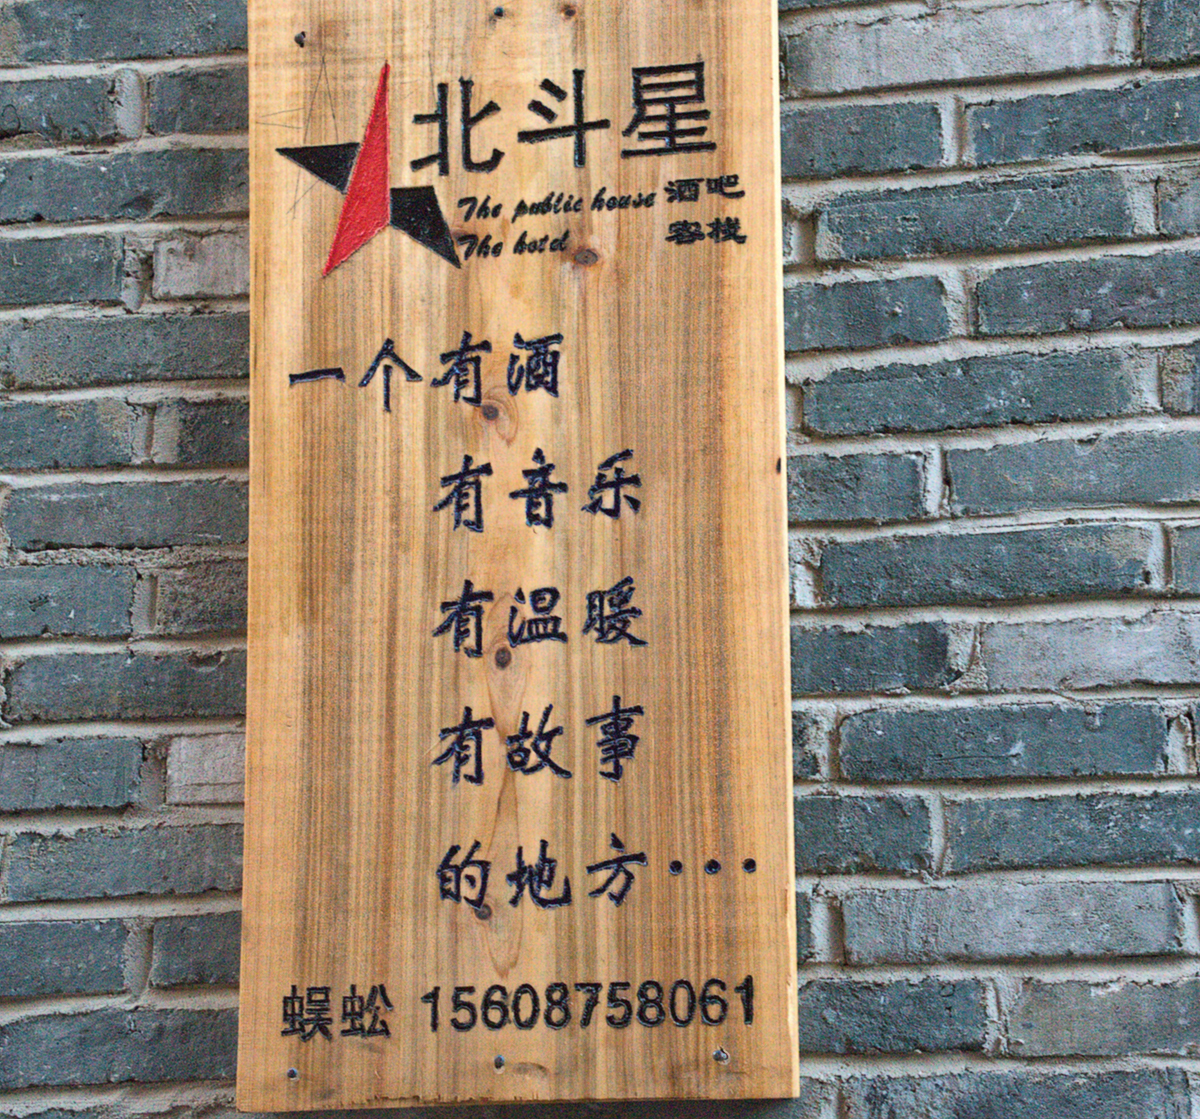 北斗星
The public house 酒吧
The hotel 客栈
一个有酒
有音乐
有温暖
有故事
的地方···
蜈蚣 15608758061